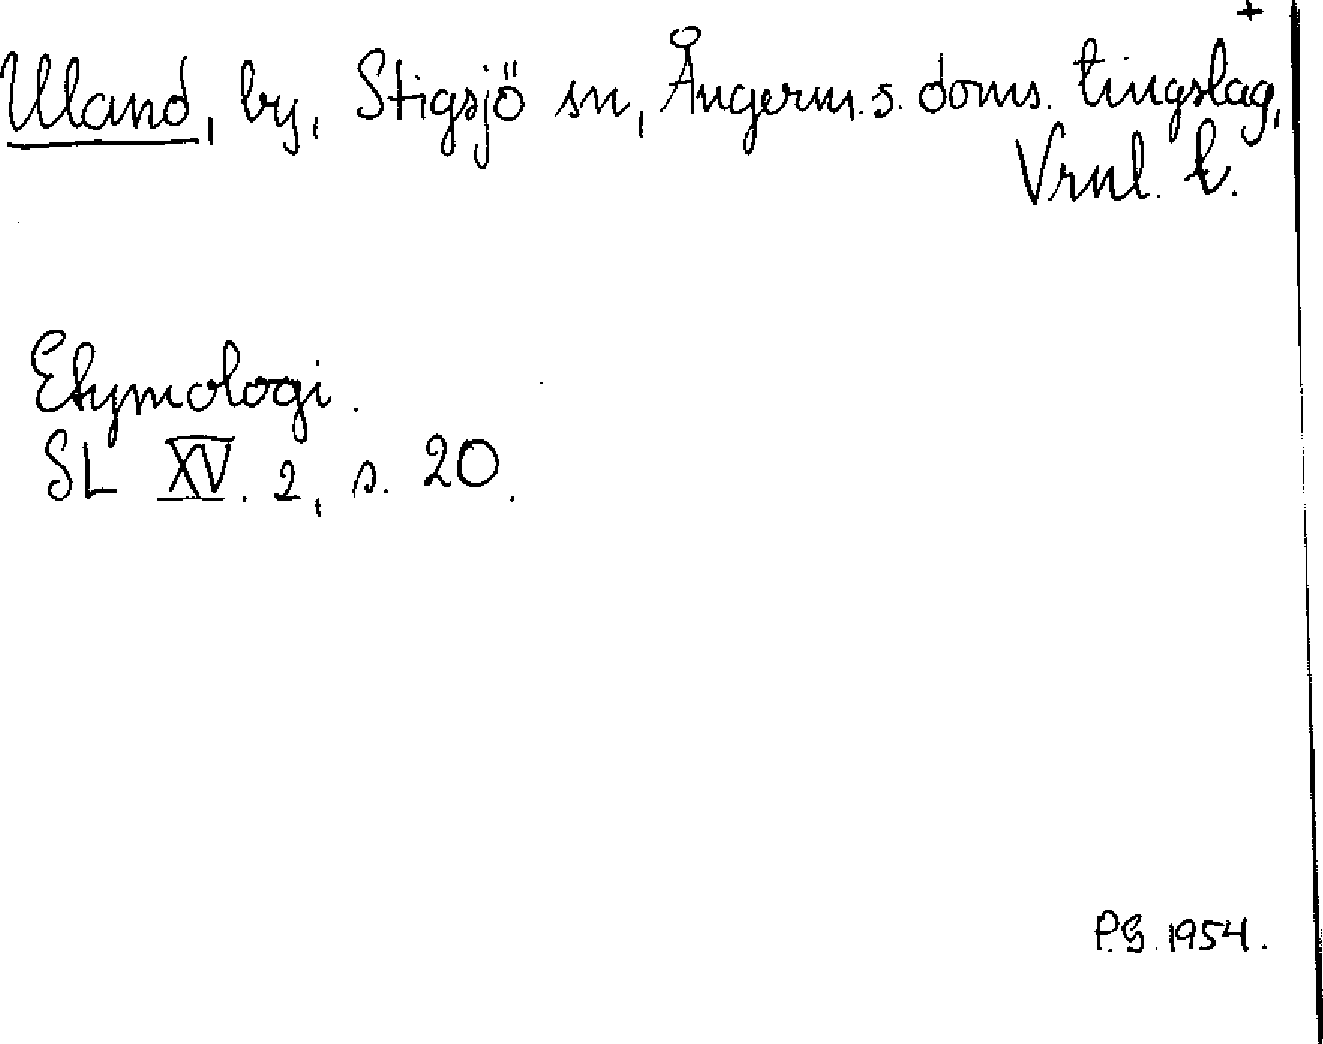 +
Uland, by, Stigsjö sn, Ångerm. s. doms. tingslag,
Vrnl. l.
Etymologi.
SL XV. 2, s. 20.
P.G. 1954.